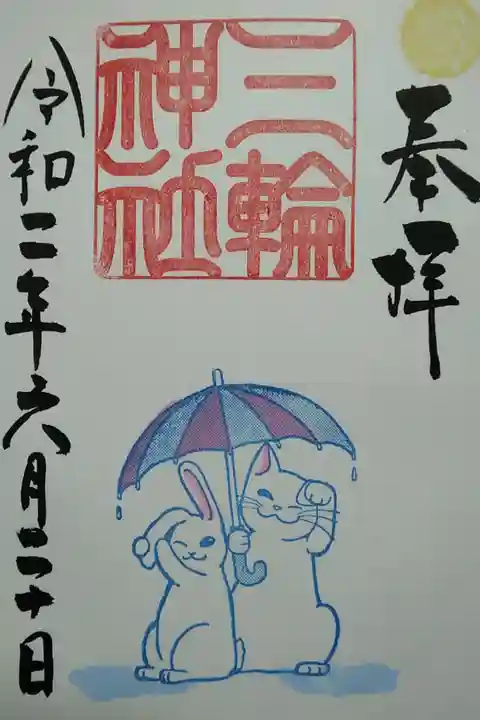 奉拝
三輪
神社
令和二年六月二十日